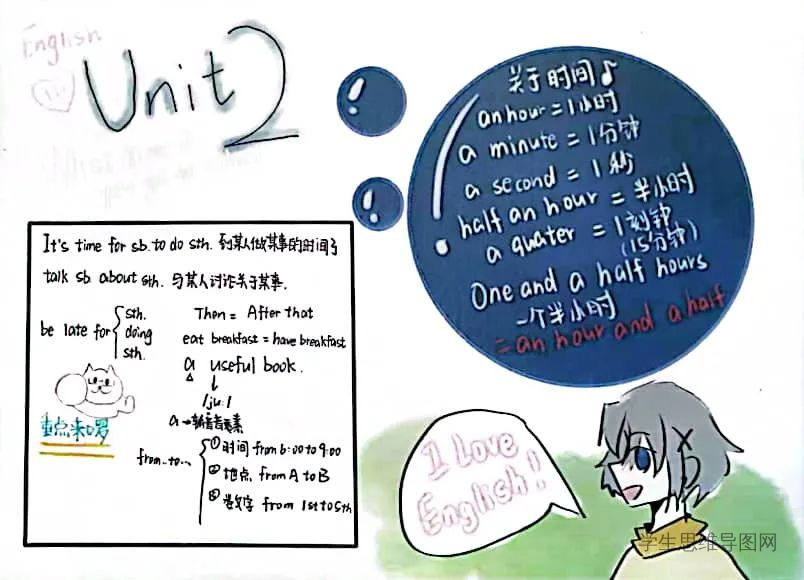 English
Unit 2
关于时间
an hour = 1小时
a minute = 1分钟
a second = 1秒
half an hour = 半小时
a quater = 1刻钟
(15分钟)
One and a half hours
一个半小时
= an hour and a half
It's time for sb. to do sth. 到某人做某事的时间了
talk sb. about sth. 与某人讨论关于某事.
be late for
sth.
doing
sth.
Then = After that
eat breakfast = have breakfast
a useful book.
/ju:/
a → 辅音音素
重点来啰
from...to...
① 时间 from 6:00 to 9:00
② 地点 from A to B
③ 数字 from 1st to 5th
I Love
English!
学生思维导图网